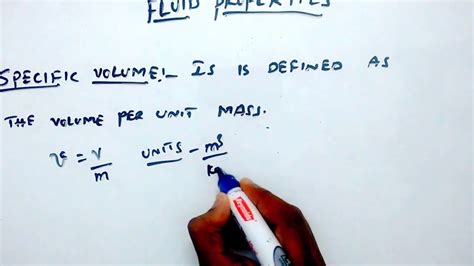 FLUID PROPERTIES
SPECIFIC VOLUME:- IS IS DEFINED AS
THE VOLUME PER UNIT MASS.
v = V/m UNITS - m³/k